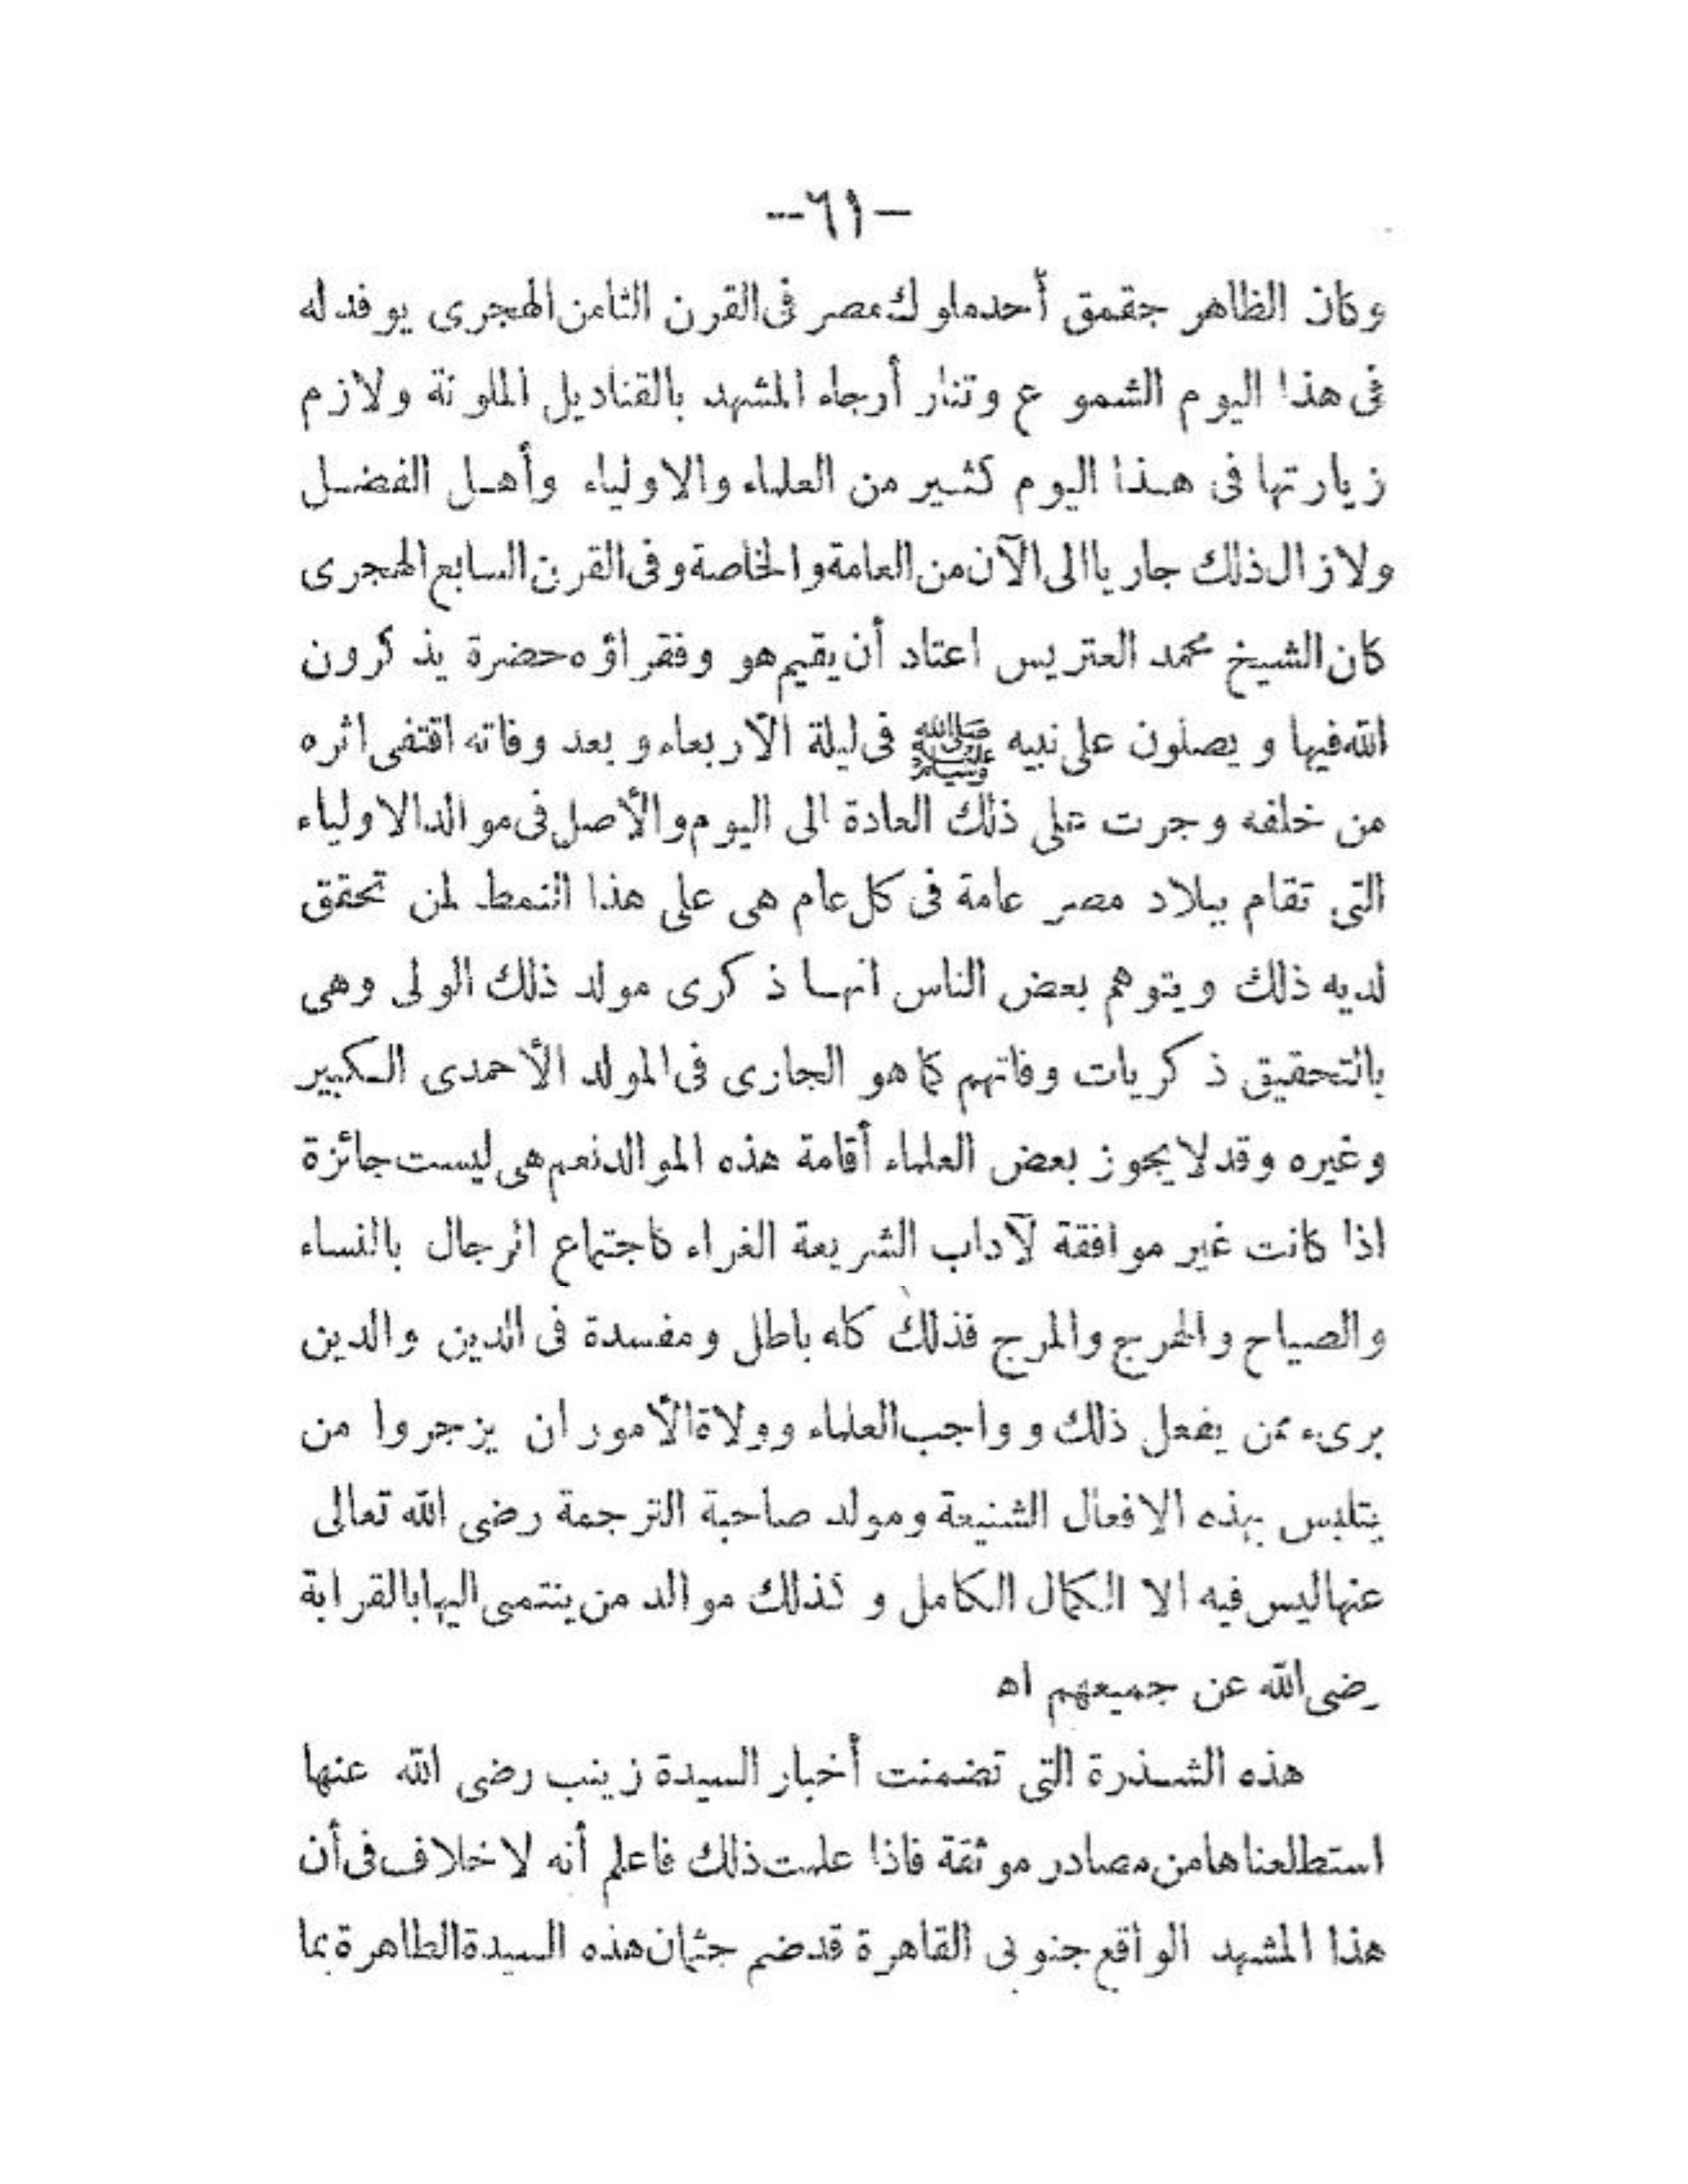 —٦١—
وكان الظاهر جقمق أحد ملوك مصر فى القرن الثامن الهجرى يوفد له
فى هذا اليوم الشموع وتنار أرجاء المشهد بالقناديل الملونة ولازم
زيارتها فى هذا اليوم كثير من العلماء والاولياء وأهل الفضل
ولازال ذلك جاريا الى الآن من العامة والخاصة وفى القرن السابع الهجرى
كان الشيخ محمد العتريس اعتاد أن يقيم هو وفقراؤه حضرة يذكرون
الله فيها ويصلون على نبيه ﷺ فى ليلة الأربعاء وبعد وفاته اقتفى اثره
من خلفه وجرت على ذلك العادة الى اليوم والأصل فى موالد الاولياء
التى تقام ببلاد مصر عامة فى كل عام هى على هذا النمط لمن تحقق
لديه ذلك ويتوهم بعض الناس انها ذكرى مولد ذلك الولى وهى
بالتحقيق ذكريات وفاتهم كما هو الجارى فى المولد الأحمدى الكبير
وغيره وقد لا يجوز بعض العلماء أقامة هذه الموالد نعم هى ليست جائزة
اذا كانت غير موافقة لآداب الشريعة الغراء كاجتماع الرجال بالنساء
والصياح والهرج والمرج فذلك كله باطل ومفسدة فى الدين والدين
برىء ممن يفعل ذلك وواجب العلماء وولاة الأمور ان يزجروا من
يتلبس بهذه الافعال الشنيعة ومولد صاحبة الترجمة رضى الله تعالى
عنها ليس فيه الا الكمال الكامل وكذلك موالد من ينتمى اليها بالقرابة
رضى الله عن جميعهم اه
هذه الشذرة التى تضمنت أخبار السيدة زينب رضى الله عنها
استطلعناها من مصادر موثقة فاذا علمت ذلك فاعلم أنه لا خلاف فى أن
هذا المشهد الواقع جنوبى القاهرة قد ضم جثمان هذه السيدة الطاهرة بما